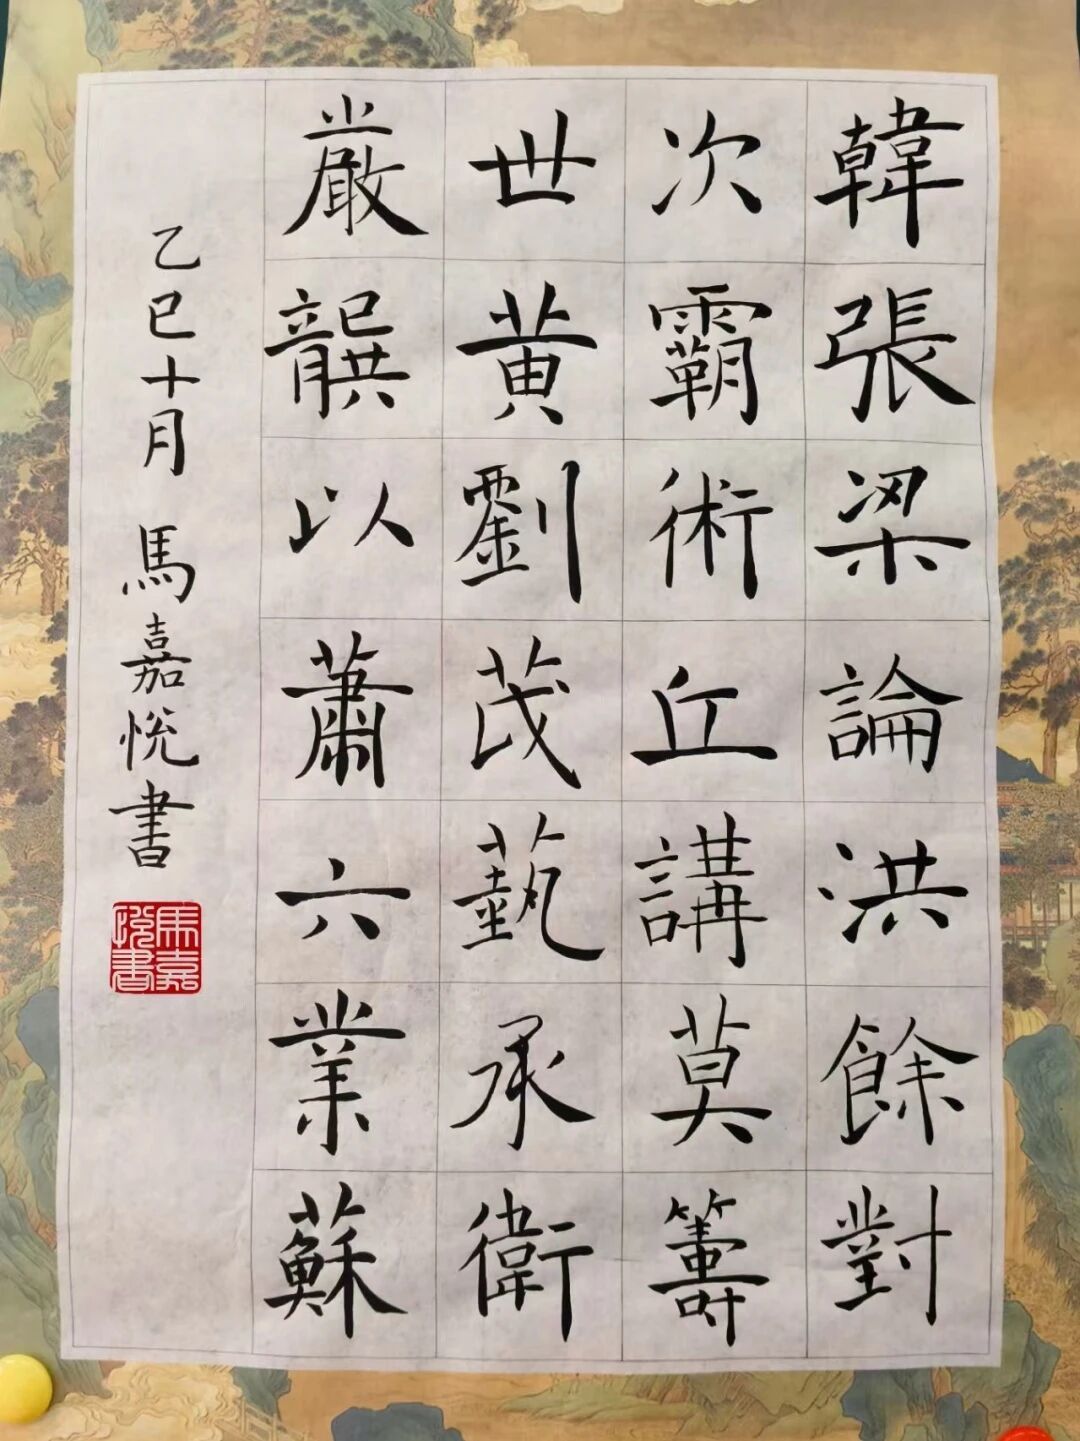 韓張梁論洪餘對
次霸術丘講莫籌
世黄劉茂藝承衛
嚴龔以蕭六業蘇
乙巳十月 馬嘉悅書
馬嘉悅書